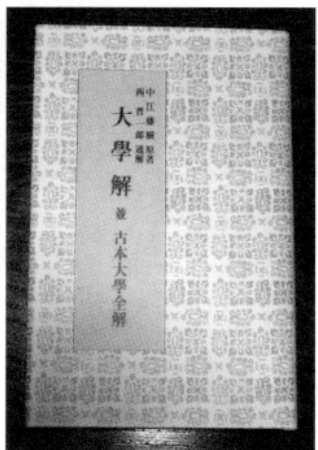 中江藤樹原著
西晋一郎通解
大學解 並 古本大學全解